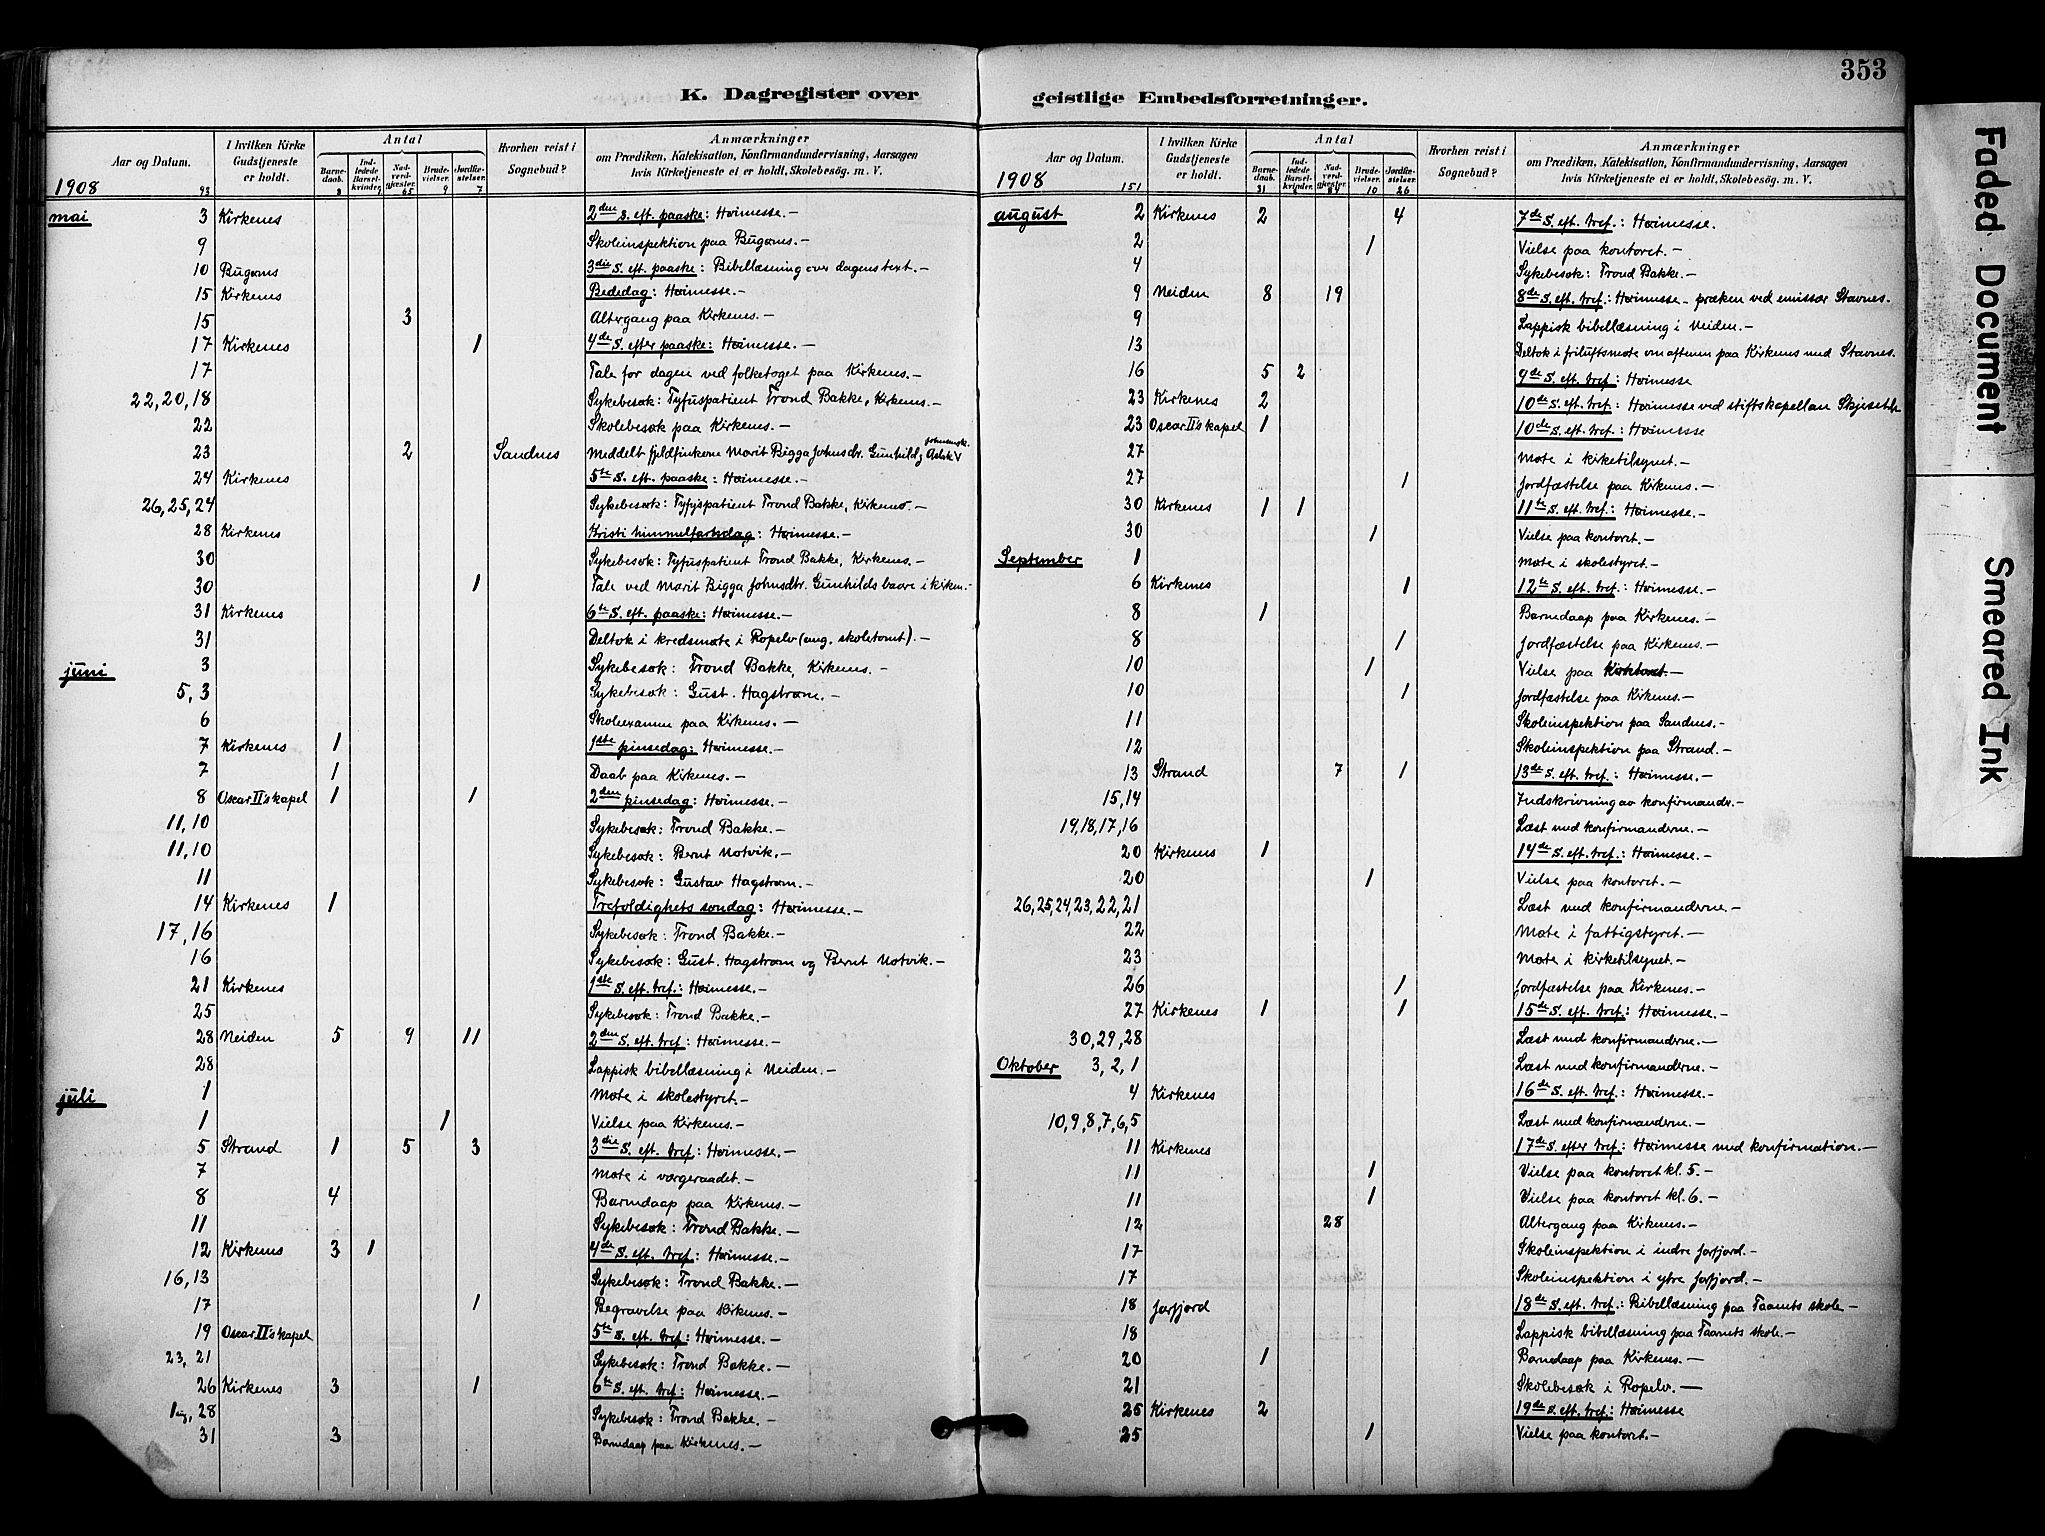 353
K. Dagregister over geistlige Embedsforretninger.
Faded Document
Smeared Ink
Aar og Datum. I hvilken Kirke Gudstjeneste er holdt. Antal Hvorhen reist i Sognebud? Anmærkninger
Barnedaab. Indledede Barselkvinder. Nadverdgjæster. Brudevielser. Jordfæstelser. om Prædiken, Katekisation, Konfirmandundervisning, Aarsagen hvis Kirketjeneste ei er holdt, Skolebesøg. m. V.
1908 93 8 65 9 7
mai 3 Kirkenes 2den S. eft. paaske: Høimesse.-
9 Skoleinspektion paa Bugønes.-
10 Bugønes 3die S. eft. paaske: Bibellæsning over dagens text.-
15 Kirkenes Bededag: Høimesse.-
15 3 Altergang paa Kirkenes.-
17 Kirkenes 1 4de S. efter paaske: Høimesse.-
17 Tale for dagen ved folketoget paa Kirkenes.-
22, 20, 18 Sykebesøk: Tyfuspatient Trond Bakke, Kirkenes.-
22 Skolebesøk paa Kirkenes.-
23 2 Sandnes Meddelt fjeldfinkerne Marit Bigga Johnsdr. Gunhild
24 Kirkenes 5te S. eft. paaske: Høimesse.-
26, 25, 24 Sykebesøk: Tyfuspatient Trond Bakke, Kirkenes.-
28 Kirkenes Kristi himmelfartsdag: Høimesse.-
30 Sykebesøk: Tyfuspatient Trond Bakke, Kirkenes.-
30 1 Tale ved Marit Bigga Johnsdtr. Gunhilds baare i kirken.-
31 Kirkenes 6te S. eft. paaske: Høimesse.-
31 Deltok i kredsmøte i Ropelv (ang. skoletomt).-
juni 3 Sykebesøk: Trond Bakke, Kirkenes.-
5, 3 Sykebesøk: Gust. Hagstrøm.-
6 Skoleexamen paa Kirkenes.-
7 Kirkenes 1 1ste pinsedag: Høimesse.-
7 1 Daab paa Kirkenes.-
8 Oscar II's kapel 1 1 2den pinsedag: Høimesse.-
11, 10 Sykebesøk: Trond Bakke.-
11, 10 Sykebesøk: Bernt Notvik.-
11 Sykebesøk: Gustav Hagstrøm.-
14 Kirkenes 1 Trefoldighets søndag: Høimesse.-
17, 16 Sykebesøk: Trond Bakke.-
16 Sykebesøk: Gust. Hagstrøm og Bernt Notvik.-
21 Kirkenes 1ste S. eft. tref.: Høimesse.-
25 Sykebesøk: Trond Bakke.-
28 Neiden 5 9 11 2den S. eft. tref: Høimesse.-
28 Lappisk bibellæsning i Neiden.-
juli 1 Møte i skolestyret.-
1 1 Vielse paa Kirkenes.-
5 Strand 1 5 3 3die S. eft. tref: Høimesse.-
7 Møte i værgeraadet.-
8 4 Barnedaap paa Kirkenes.-
11 Sykebesøk: Trond Bakke.-
12 Kirkenes 3 1 4de S. eft. tref: Høimesse.-
16, 13 Sykebesøk: Trond Bakke.-
17 1 Begravelse paa Kirkenes.-
19 Oscar II's kapel 5te S. eft. tref: Høimesse.-
23, 21 Sykebesøk: Trond Bakke.-
26 Kirkenes 3 1 6te S. eft. tref: Høimesse.-
28 Sykebesøk: Trond Bakke.-
31 3 Barnedaap paa Kirkenes.-
Aar og Datum. I hvilken Kirke Gudstjeneste er holdt. Antal Hvorhen reist i Sognebud? Anmærkninger
Barnedaab. Indledede Barselkvinder. Nadverdgjæster. Brudevielser. Jordfæstelser. om Prædiken, Katekisation, Konfirmandundervisning, Aarsagen hvis Kirketjeneste ei er holdt, Skolebesøg. m. V.
1908 151 31 10 26
august 2 Kirkenes 2 4 7de S. eft. tref.: Høimesse.
2 1 Vielse paa kontoret.-
4 Sykebesøk: Trond Bakke.-
9 Neiden 8 19 8de S. eft. tref: Høimesse - præken ved emissær Stavnes.
9 Lappisk bibellæsning i Neiden.-
13 Deltok i friluftsmøte om aftenen paa Kirkenes med Stavnes.
16 5 2 9de S. eft. tref: Høimesse
23 Kirkenes 2 10de S. eft. tref: Høimesse ved stiftskapellan Skjeseth
23 Oscar II's kapel 1 10de S. eft. tref.: Høimesse
27 Møte i kirketilsynet.-
27 1 Jordfæstelse paa Kirkenes.-
30 Kirkenes 1 1 11te S. eft. tref.: Høimesse.-
30 1 Vielse paa kontoret.-
September 1 Møte i skolestyret.-
6 Kirkenes 1 12te S. eft. tref: Høimesse.-
8 1 Barnedaap paa Kirkenes.-
8 1 Jordfæstelse paa Kirkenes.-
10 1 Vielse paa kontoret.-
10 1 Jordfæstelse paa Kirkenes.-
11 Skoleinspektion paa Sandnes.-
12 Skoleinspektion paa Strand.-
13 Strand 7 1 13de S. eft. tref: Høimesse.-
15, 14 Indskrivning av konfirmandr.-
19, 18, 17, 16 Læst med konfirmanderne.-
20 Kirkenes 1 14de S. eft. tref.: Høimesse.-
20 1 Vielse paa kontoret.-
26, 25, 24, 23, 22, 21 Læst med konfirmanderne.-
22 Møte i fattigstyret.-
23 Møte i kirketilsynet.-
26 1 Jordfæstelse paa Kirkenes.-
27 Kirkenes 1 1 15de S. eft. tref: Høimesse.-
30, 29, 28 Læst med konfirmanderne.-
Oktober 3, 2, 1 Læst med konfirmanderne.-
4 Kirkenes 16de S. eft. tref.: Høimesse.-
10, 9, 8, 7, 6, 5 Læst med konfirmanderne.-
11 Kirkenes 17de S. efter tref: Høimesse med konfirmation.-
11 1 Vielse paa kontoret kl. 5.-
11 1 Vielse paa kontoret kl. 6.-
12 28 Altergang paa Kirkenes.-
17 Skoleinspektion i indre Jarfjord.-
17 Skoleinspektion i ytre Jarfjord.-
18 Jarfjord 18de S. eft. tref.: Bibellæsning paa Taarnets skole-
18 Lappisk bibellæsning paa Taarnets skole.-
20 1 Barnedaap paa Kirkenes.-
21 Skolebesøk i Ropelv.-
25 Kirkenes 2 19de S. eft. tref.: Høimesse
25 1 Vielse paa kontoret.-